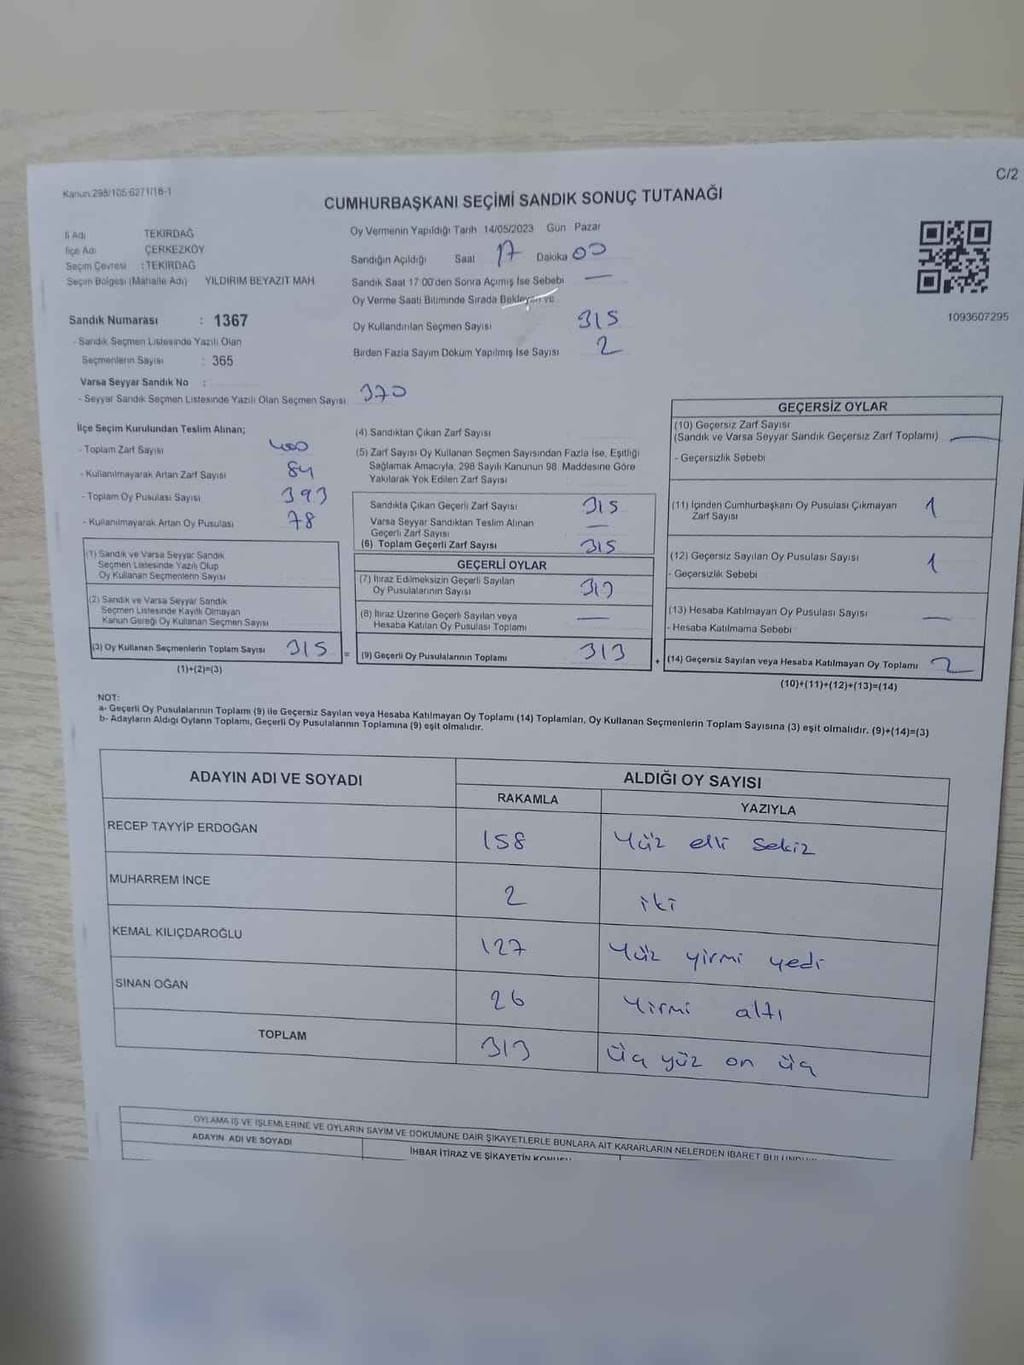 Kanun 298/105 6271/18-1
C/2
CUMHURBAŞKANI SEÇİMİ SANDIK SONUÇ TUTANAĞI
İl Adı TEKİRDAĞ
İlçe Adı ÇERKEZKÖY
Seçim Çevresi : TEKİRDAĞ
Seçim Bölgesi (Mahalle Adı) YILDIRIM BEYAZIT MAH
Sandık Numarası : 1367
- Sandık Seçmen Listesinde Yazılı Olan
Seçmenlerin Sayısı : 365
Varsa Seyyar Sandık No :
- Seyyar Sandık Seçmen Listesinde Yazılı Olan Seçmen Sayısı 370
Oy Vermenin Yapıldığı Tarih 14/05/2023 Gün Pazar
Sandığın Açıldığı Saat 17 Dakika 00
Sandık Saat 17 00'den Sonra Açımış İse Sebebi —
Oy Verme Saati Bitiminde Sırada Bekleyen ve
Oy Kullandırılan Seçmen Sayısı 315
Birden Fazla Sayım Döküm Yapılmış İse Sayısı 2
1093607295
İlçe Seçim Kurulundan Teslim Alınan;
- Toplam Zarf Sayısı 400
- Kullanılmayarak Artan Zarf Sayısı 84
- Toplam Oy Pusulası Sayısı 393
- Kullanılmayarak Artan Oy Pusulası 78
(1) Sandık ve Varsa Seyyar Sandık
Seçmen Listesinde Yazılı Olup
Oy Kullanan Seçmenlerin Sayısı
(2) Sandık ve Varsa Seyyar Sandık
Seçmen Listesinde Kayıtlı Olmayan
Kanun Gereği Oy Kullanan Seçmen Sayısı
(3) Oy Kullanan Seçmenlerin Toplam Sayısı 315
(1)+(2)=(3)
(4) Sandıktan Çıkan Zarf Sayısı
(5) Zarf Sayısı Oy Kullanan Seçmen Sayısından Fazla İse, Eşitliği
Sağlamak Amacıyla, 298 Sayılı Kanunun 98. Maddesine Göre
Yakılarak Yok Edilen Zarf Sayısı
Sandıkta Çıkan Geçerli Zarf Sayısı 315
Varsa Seyyar Sandıktan Teslim Alınan
Geçerli Zarf Sayısı —
(6) Toplam Geçerli Zarf Sayısı 315
GEÇERLİ OYLAR
(7) İtiraz Edilmeksizin Geçerli Sayılan
Oy Pusulalarının Sayısı 313
(8) İtiraz Üzerine Geçerli Sayılan veya
Hesaba Katılan Oy Pusulası Toplamı —
= (9) Geçerli Oy Pusulalarının Toplamı 313
GEÇERSİZ OYLAR
(10) Geçersiz Zarf Sayısı
(Sandık ve Varsa Seyyar Sandık Geçersiz Zarf Toplamı) —
- Geçersizlik Sebebi
(11) İçinden Cumhurbaşkanı Oy Pusulası Çıkmayan
Zarf Sayısı 1
(12) Geçersiz Sayılan Oy Pusulası Sayısı 1
- Geçersizlik Sebebi
(13) Hesaba Katılmayan Oy Pusulası Sayısı —
- Hesaba Katılmama Sebebi
+ (14) Geçersiz Sayılan veya Hesaba Katılmayan Oy Toplamı 2
(10)+(11)+(12)+(13)=(14)
NOT:
a- Geçerli Oy Pusulalarının Toplamı (9) ile Geçersiz Sayılan veya Hesaba Katılmayan Oy Toplamı (14) Toplamları, Oy Kullanan Seçmenlerin Toplam Sayısına (3) eşit olmalıdır. (9)+(14)=(3)
b- Adayların Aldığı Oyların Toplamı, Geçerli Oy Pusulalarının Toplamına (9) eşit olmalıdır.
ADAYIN ADI VE SOYADI ALDIĞI OY SAYISI
RAKAMLA YAZIYLA
RECEP TAYYİP ERDOĞAN 158 Yüz elli sekiz
MUHARREM İNCE 2 iki
KEMAL KILIÇDAROĞLU 127 Yüz yirmi yedi
SİNAN OĞAN 26 Yirmi altı
TOPLAM 313 Üç yüz on üç
OYLAMA İŞ VE İŞLEMLERİNE VE OYLARIN SAYIM VE DÖKÜMÜNE DAİR ŞİKAYETLERLE BUNLARA AİT KARARLARIN NELERDEN İBARET
ADAYIN ADI VE SOYADI İHBAR İTİRAZ VE ŞİKAYETİN